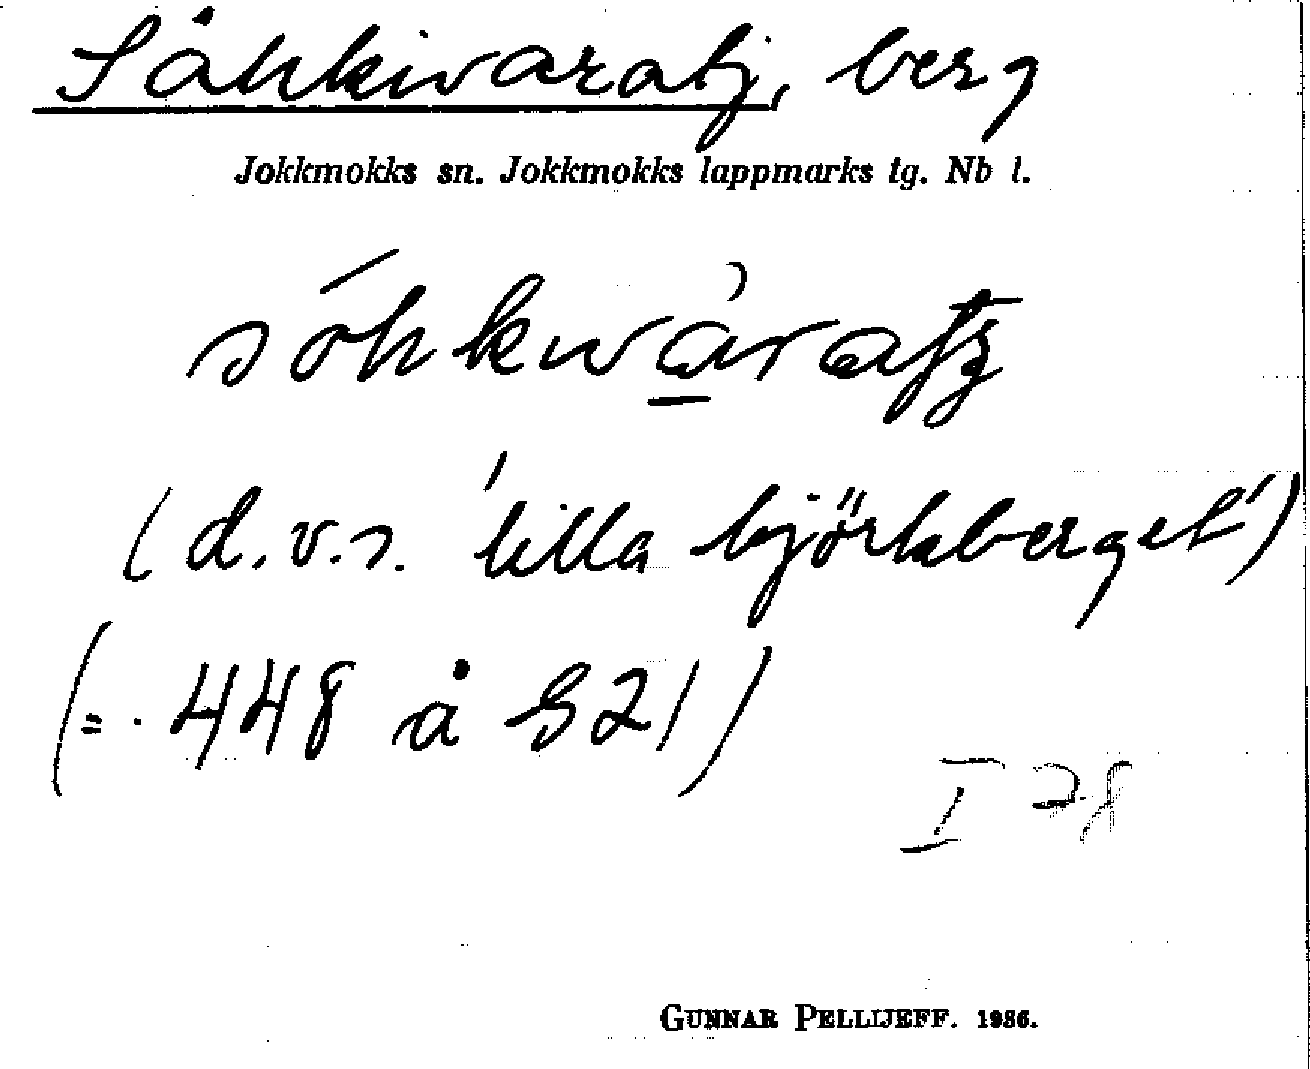 Såhkivaratj, berg
Jokkmokks sn. Jokkmokks lappmarks tg. Nb l.
sóhkwáratʒ
(d.v.s. 'lilla björkberget')
(= 448 å S21)
I 28
GUNNAR PELLIJEFF. 1986.